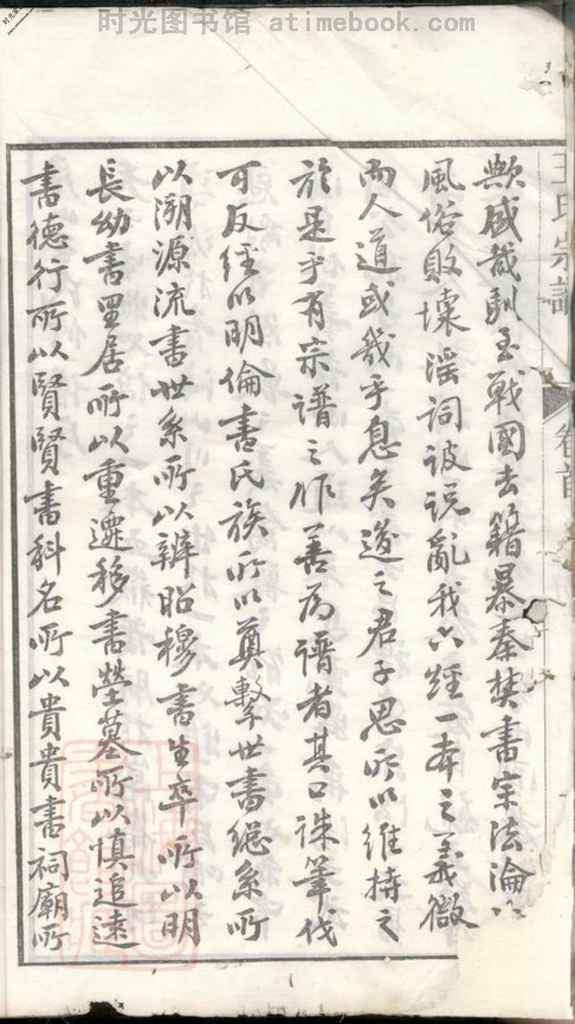 时光图书馆 atimebook.com
王氏宗譜 卷首
歟 戚哉 馴至戰國去籍暴秦焚書宗法淪以
風俗敗壞滛詞詖説亂我六經一本之義微
而人道或幾乎息矣後之君子思所以維持之
於是乎有宗譜之作善為譜者其口誅筆伐
可反經以明倫書氏族所以奠繫世書總系所
以溯源流書世系所以辨昭穆書生卒所以明
長幼書里居所以重遷移書塋墓所以慎追遠
書德行所以賢賢書科名所以貴貴書祠廟所